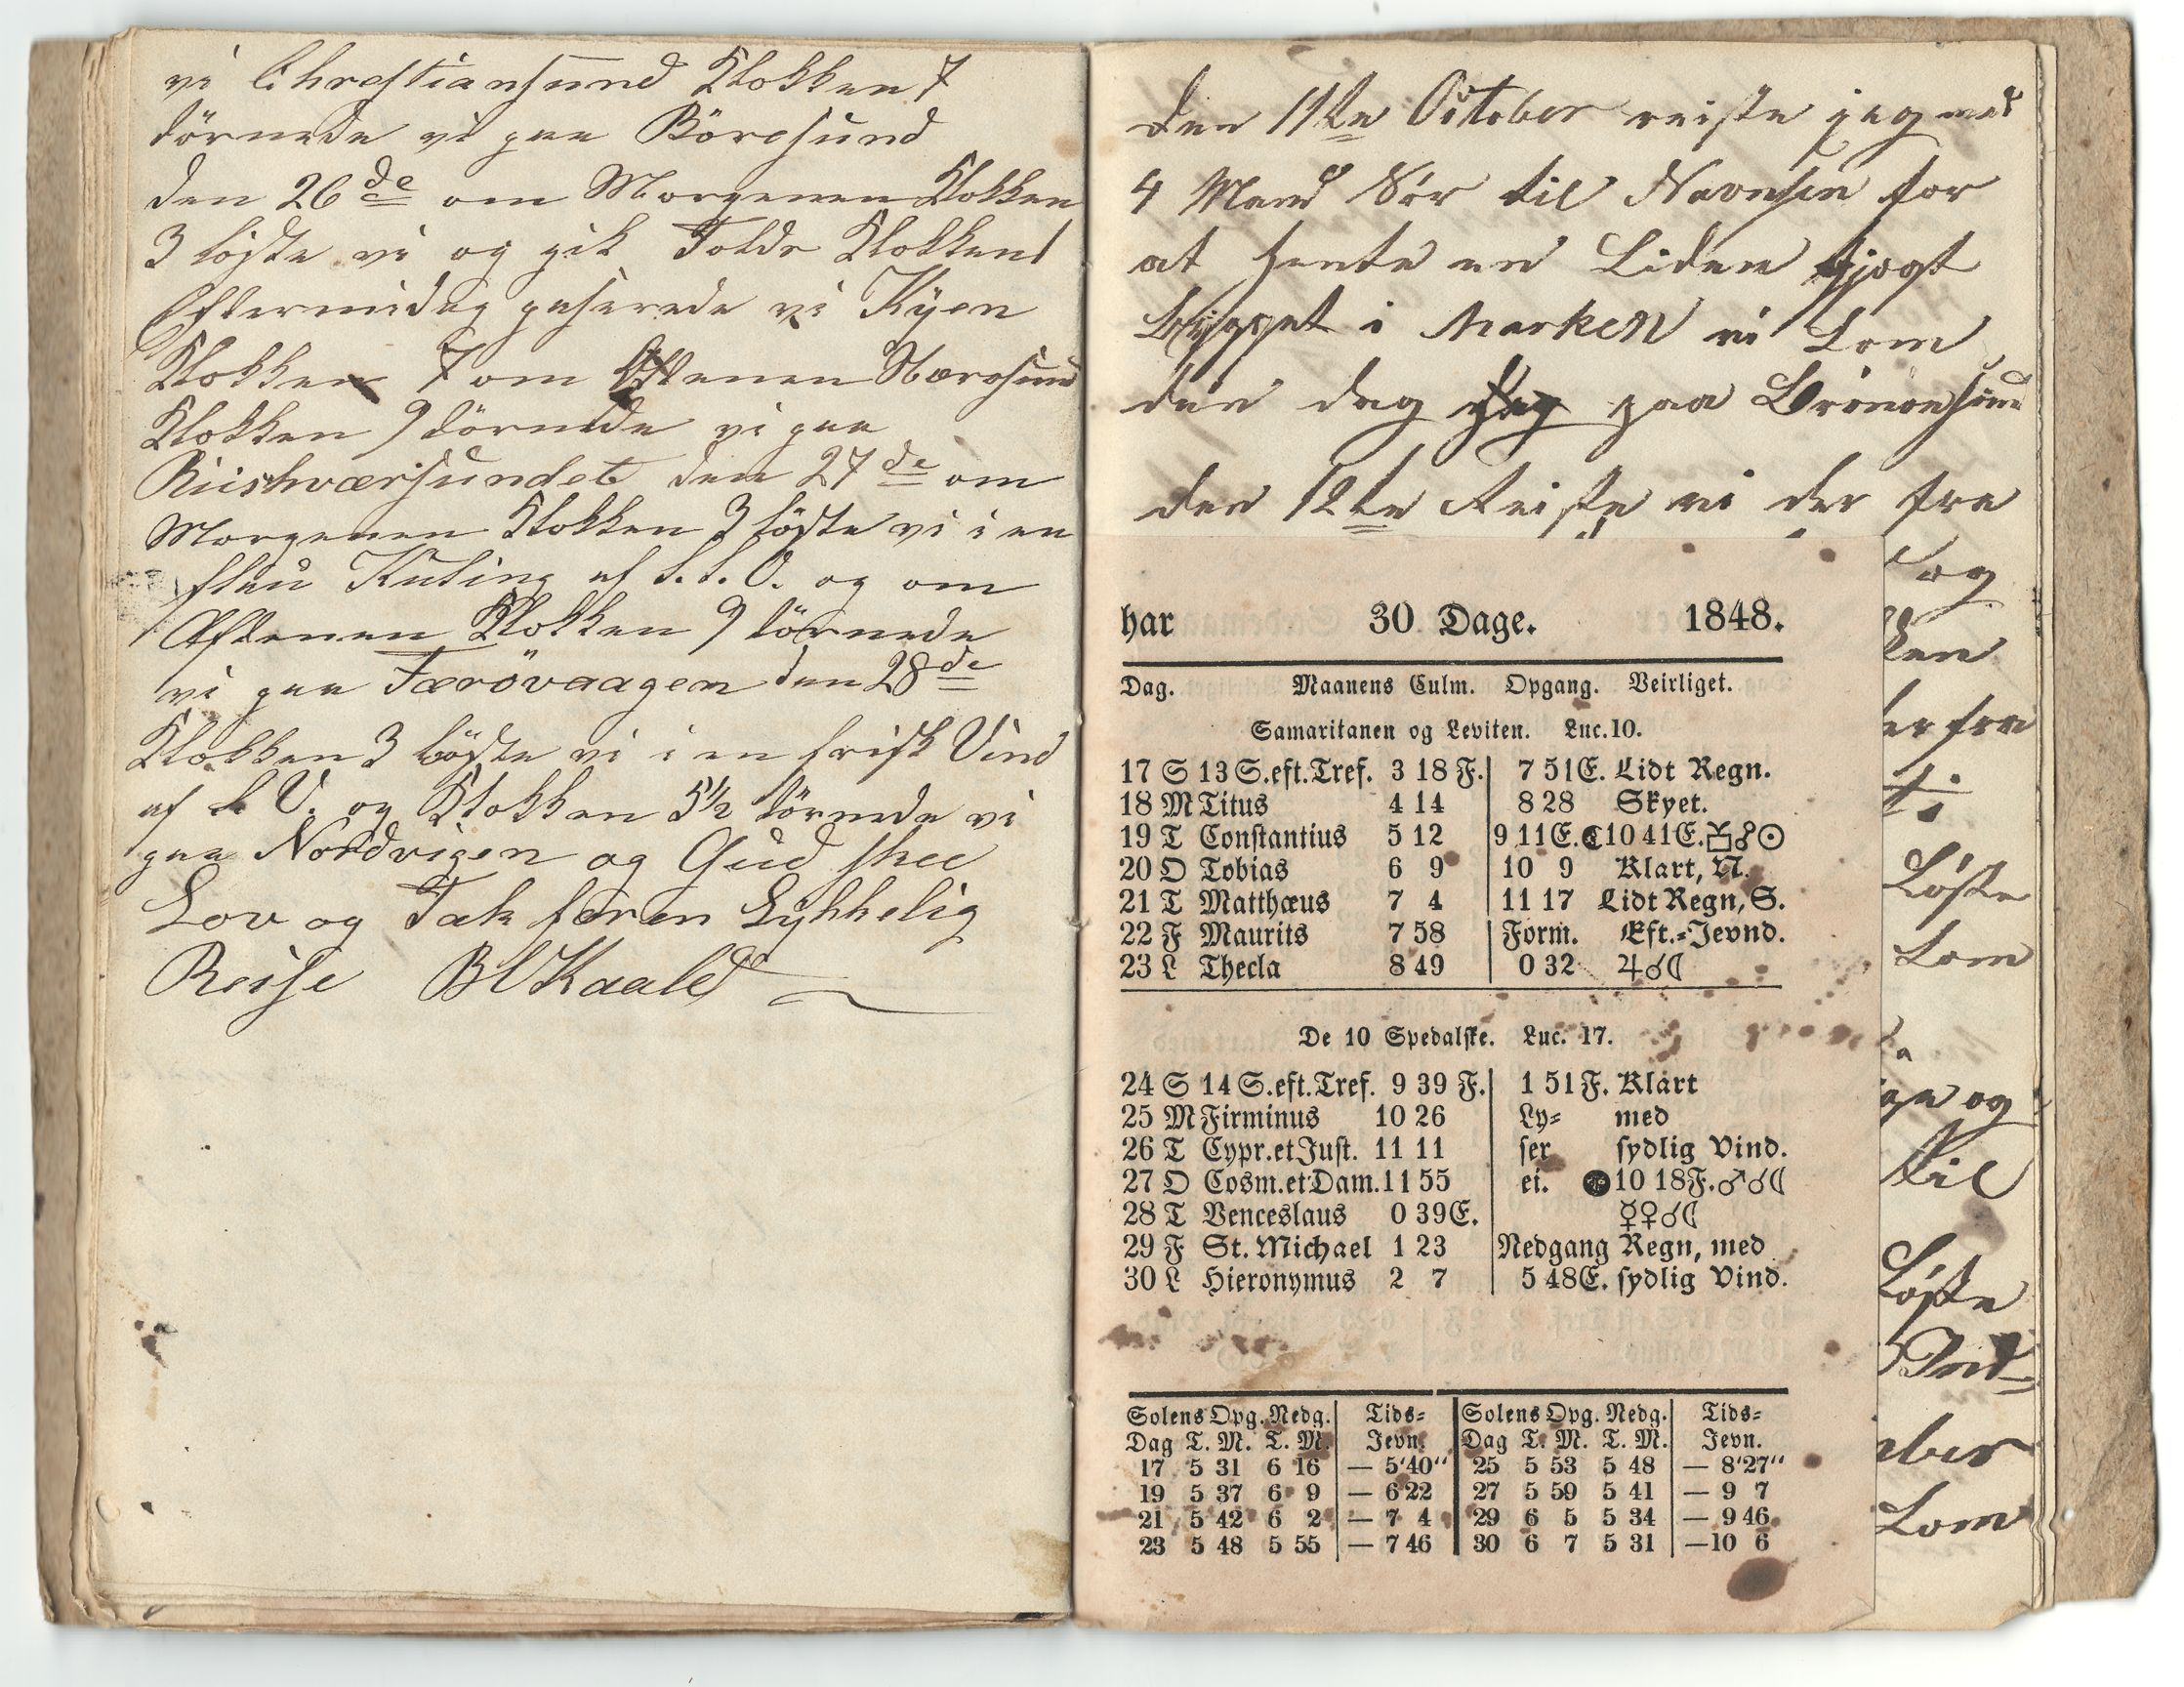 vi Christiansund Klokken 7
törnede vi paa Böresund
den 26de om Morgenen Klokken
3 löste vi og gik Folde Klokken 1
Eftermidag paserede vi Kÿen
Klokken 7 om Aftenen Nærøsund
Klokken 9 törnede vi paa
Riishværsundet den 27de om
Morgenen Klokken 3 löste vi i en
flau Kuling af S.S.O. og om
Aftenen Klokken 9 törnede
vi paa Færövaagen den 28de
Klokken 3 löste vi i en frisk Vind
af S.V. og Klokken 5½ törnede vi
paa Nordvigen og Gud skee
Lov og Tak for en Lykkelig
Reise BVKaald
den 11te October reiste jeg med
4 Mand Sör til for
at hente en Liden
bygget i Marken vi kom
den dag paa Brönöesund
den 12te Reiste vi der fra
og
ken
er fra
ti
Löste
kom
ge og
til
Löste
Ind
ber
kom
har 30 Dage. 1848.
Dag. Maanens Culm. Opgang. Veirliget.
Samaritanen og Leviten. Luc. 10.
17 S 13 S. eft. Tref. 3 18 F. 7 51 E. Lidt Regn.
18 M Titus 4 14 8 28 Skyet.
19 T Constantius 5 12 9 11 E. ☾ 10 41 E. ☍☉
20 O Tobias 6 9 10 9 Klart, N.
21 T Matthæus 7 4 11 17 Lidt Regn, S.
22 F Maurits 7 58 Form. Eft.-Jevnd.
23 L Thecla 8 49 0 32 ♃☌☾
De 10 Spedalske. Luc. 17.
24 S 14 S. eft. Tref. 9 39 F. 1 51 F. Klart
25 M Firminus 10 26 Ly- med
26 T Cypr. et Just. 11 11 ser sydlig Vind.
27 O Cosm. et Dam. 11 55 ei. ● 10 18 F. ♂☌☾
28 T Venceslaus 0 39 E. ☿♀☌☾
29 F St. Michael 1 23 Nedgang Regn, med
30 L Hieronymus 2 7 5 48 E. sydlig Vind.
Solens Opg. Nedg. Tids- Solens Opg. Nedg. Tids-
Dag T. M. T. M. Jevn. Dag T. M. T. M. Jevn.
17 5 31 6 16 — 5'40" 25 5 53 5 48 — 8'27"
19 5 37 6 9 — 6 22 27 5 59 5 41 — 9 7
21 5 42 6 2 — 7 4 29 6 5 5 34 — 9 46
23 5 48 5 55 — 7 46 30 6 7 5 31 — 10 6